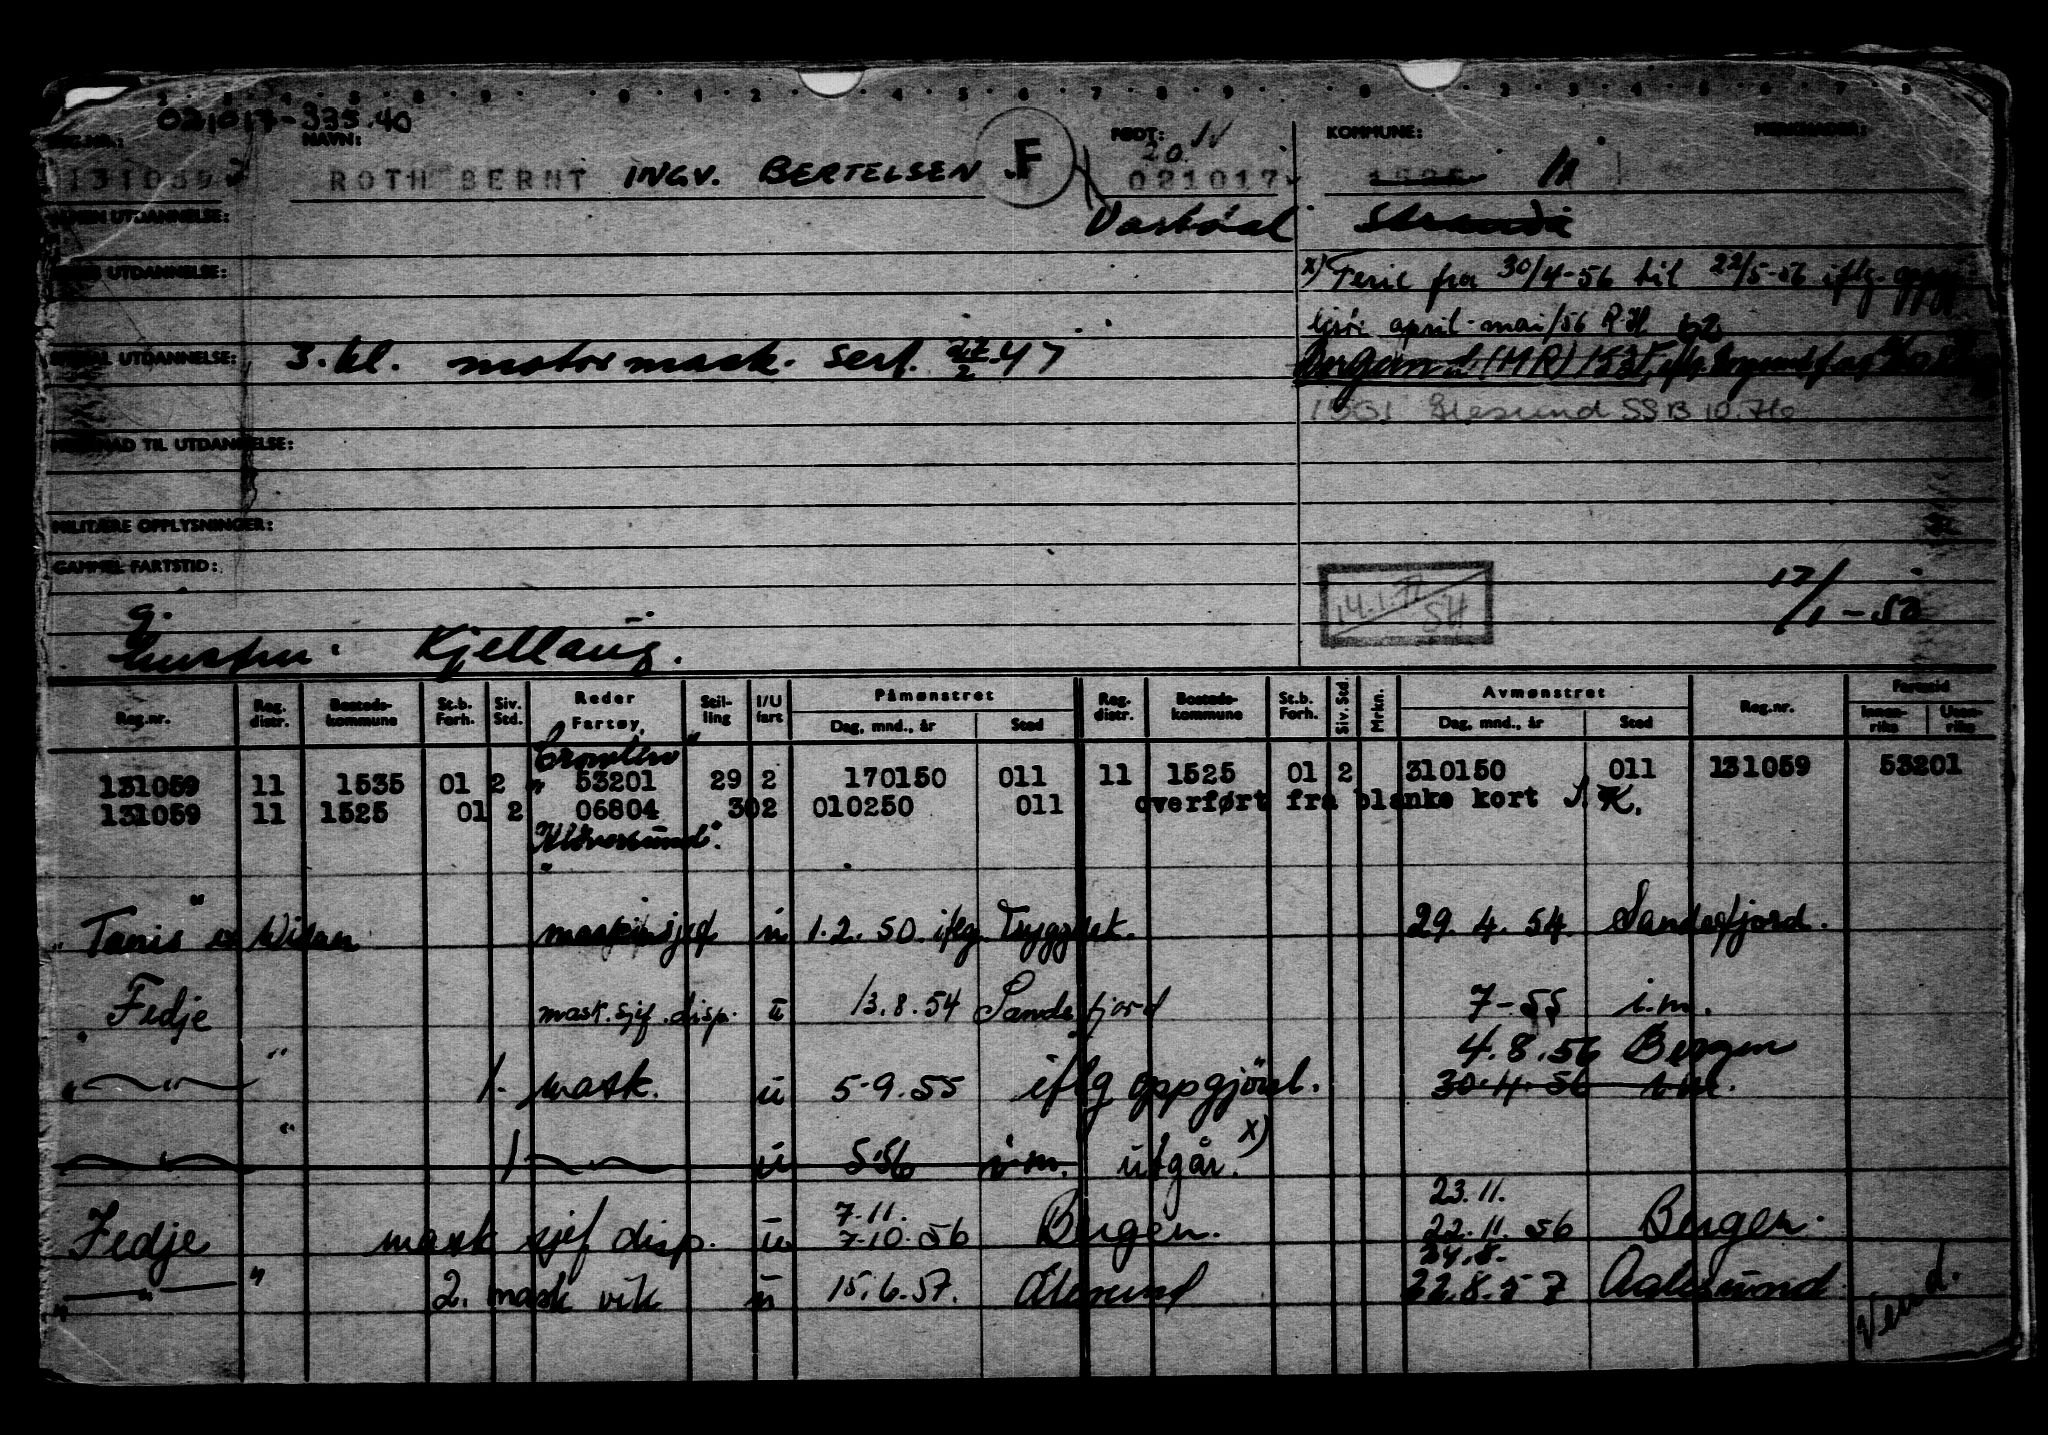 021017-335.40
REG.NR.: NAVN: FØDT: KOMMUNE: MERKNADER:
131059 ROTH BERNT INGV. BERTELSEN F 20. 021017 1525
UTDANNELSE:
UTDANNELSE:
x) Ferie fra 30/4-56 til 22/5-56 iflg. oppg
april-mai/56
UTDANNELSE: 3. kl. motormask. sert. 27/2-47
1531
TIL UTDANNELSE:
MILITÆRE OPPLYSNINGER:
GAMMEL FARTSTID:
14.1.77 SH
17/1-50
g.
hustru: Kjellaug.
Reg.nr. Reg. distr. Bosteds-kommune St.b. Forh. Siv. Std. Reder Fartøy, Stil-ling I/U fart Påmønstret Dag, mnd., år Sted Reg. distr. Bosteds-kommune St.b. Forh. Siv. Std. Mrkn. Avmønstret Dag, mnd., år Sted Reg.nr. Fartstid Innen-riks Uten-riks
131059 11 1535 01 2 53201 29 2 170150 011 11 1525 01 2 310150 011 131059 53201
131059 11 1525 01 2 06804 302 010250 011 overført fra blanke kort
"Tanis ex Vilan" maskinsjef u 1.2.50 iflg. Tryggdet. 29.4.54 Sandefjord.
"Fedje mask.sjef.disp. u 13.8.54 Sandefjord 7-55 i.m.
4.8.56 Bergen
" — " — " 1. mask. u 5.9.55 iflg oppgjörd. 30.4.56 i.m.
" — " — " 1 — " — u 5.56 i.m. utgår. x)
23.11.
7.11.
Fedje mask sjef disp. u 7.10.56 Bergen. 22.11.56 Bergen.
24.8.
" — " — " 2. mask vik u 15.6.57. Ålesund 22.8.57 Aalesund
Vend.